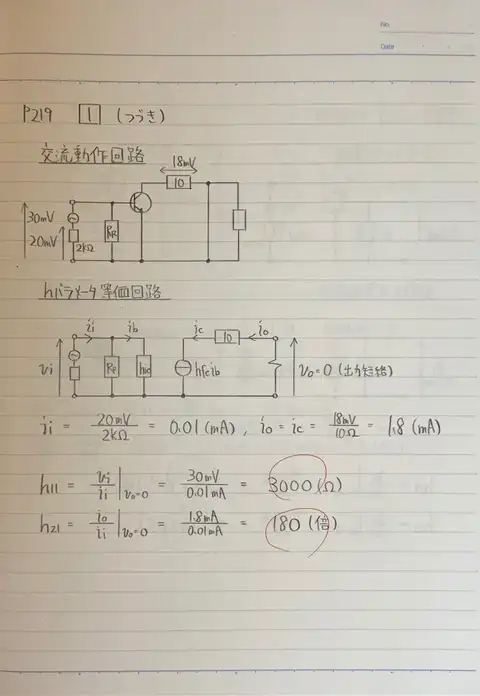 No.
Date
P219 1 (つづき)
交流動作回路
18mV
10
30mV
20mV
2kΩ
hパラメータ等価回路
ii ib ic 10 io
vi hie hfeib vo=0 (出力短絡)
ii = 20mV/2kΩ = 0.01 (mA) , io = ic = 18mV/10Ω = 1.8 (mA)
h11 = vi/ii |vo=0 = 30mV/0.01mA = 3000 (Ω)
h21 = io/ii |vo=0 = 1.8mA/0.01mA = 180 (倍)